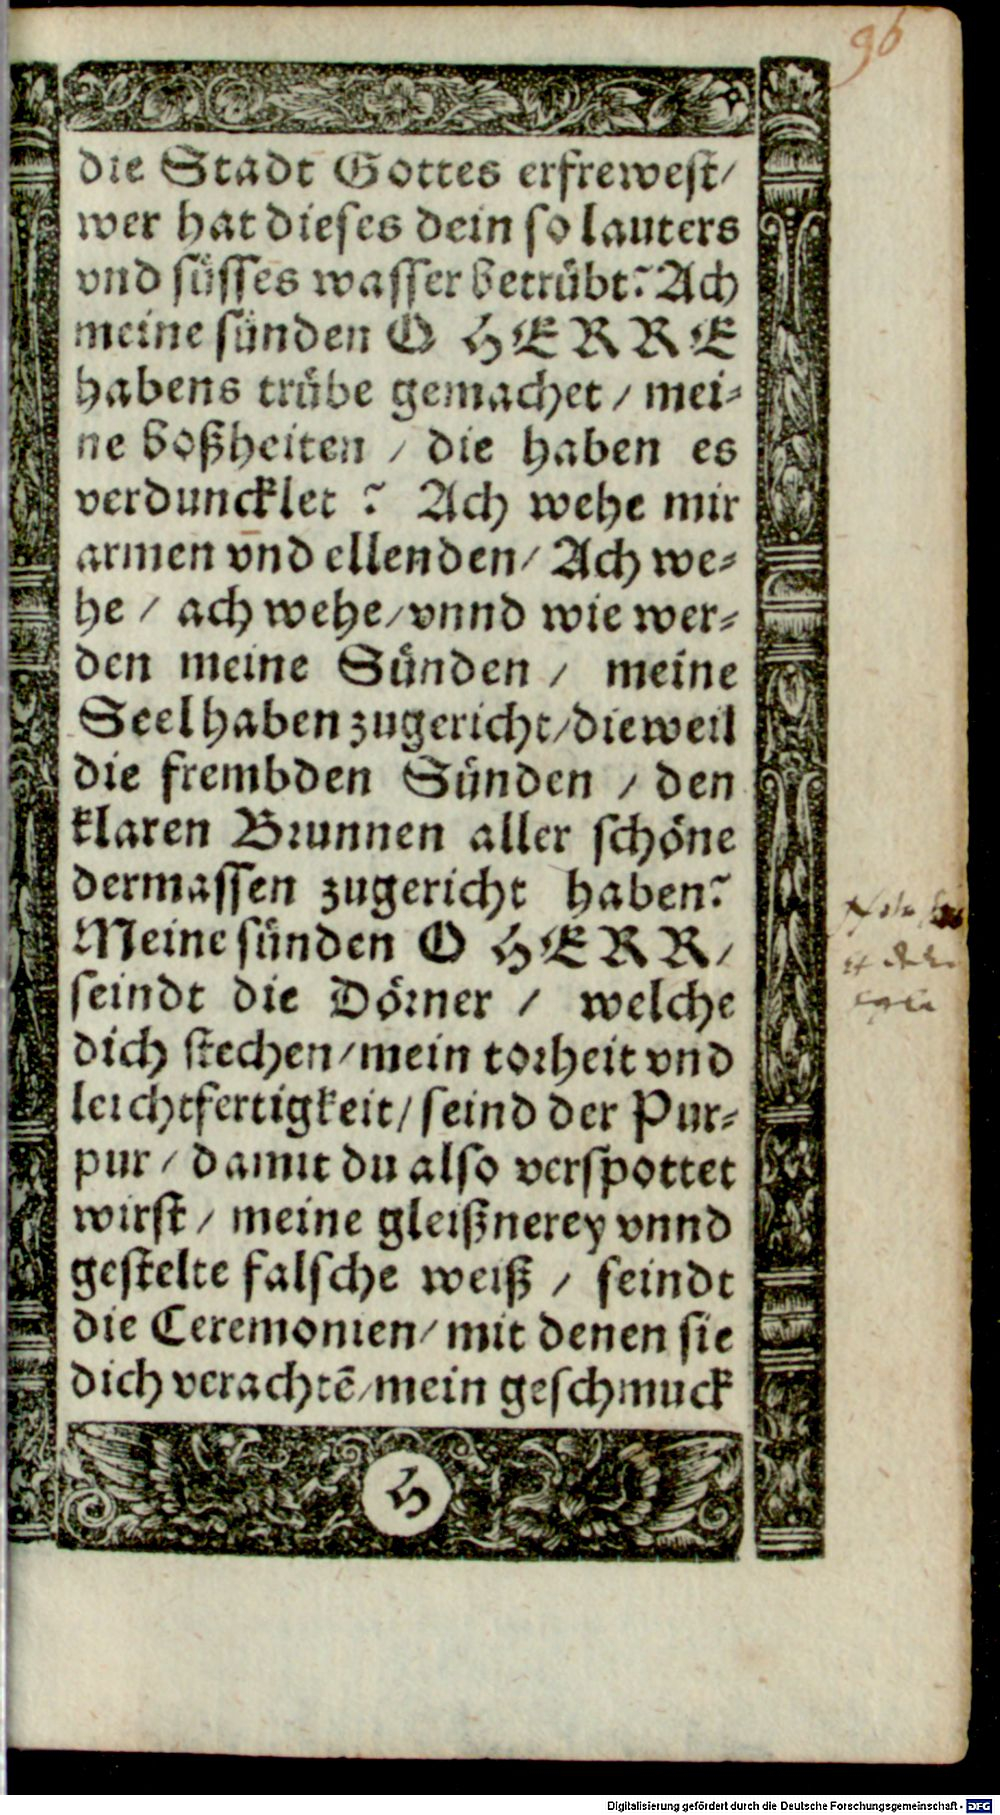 96
die Stadt Gottes erfrewest/
wer hat dieses dein so lauters
vnd süsses wasser betrübt? Ach
meine sünden O HERRE
habens trübe gemachet / mei-
ne boßheiten / die haben es
verduncklet ? Ach wehe mir
armen vnd ellenden / Ach we-
he / ach wehe / vnnd wie wer-
den meine Sünden / meine
Seel haben zugericht / dieweil
die frembden Sünden / den
klaren Brunnen aller schöne
dermassen zugericht haben?
Meine sünden O HERR /
seindt die Dörner / welche
dich stechen / mein torheit vnd
leichtfertigkeit / seind der Pur-
pur / damit du also verspottet
wirst / meine gleißnerey vnnd
gestelte falsche weiß / seindt
die Ceremonien / mit denen sie
dich verachtē / mein geschmuck
H
Digitalisierung gefördert durch die Deutsche Forschungsgemeinschaft - DFG